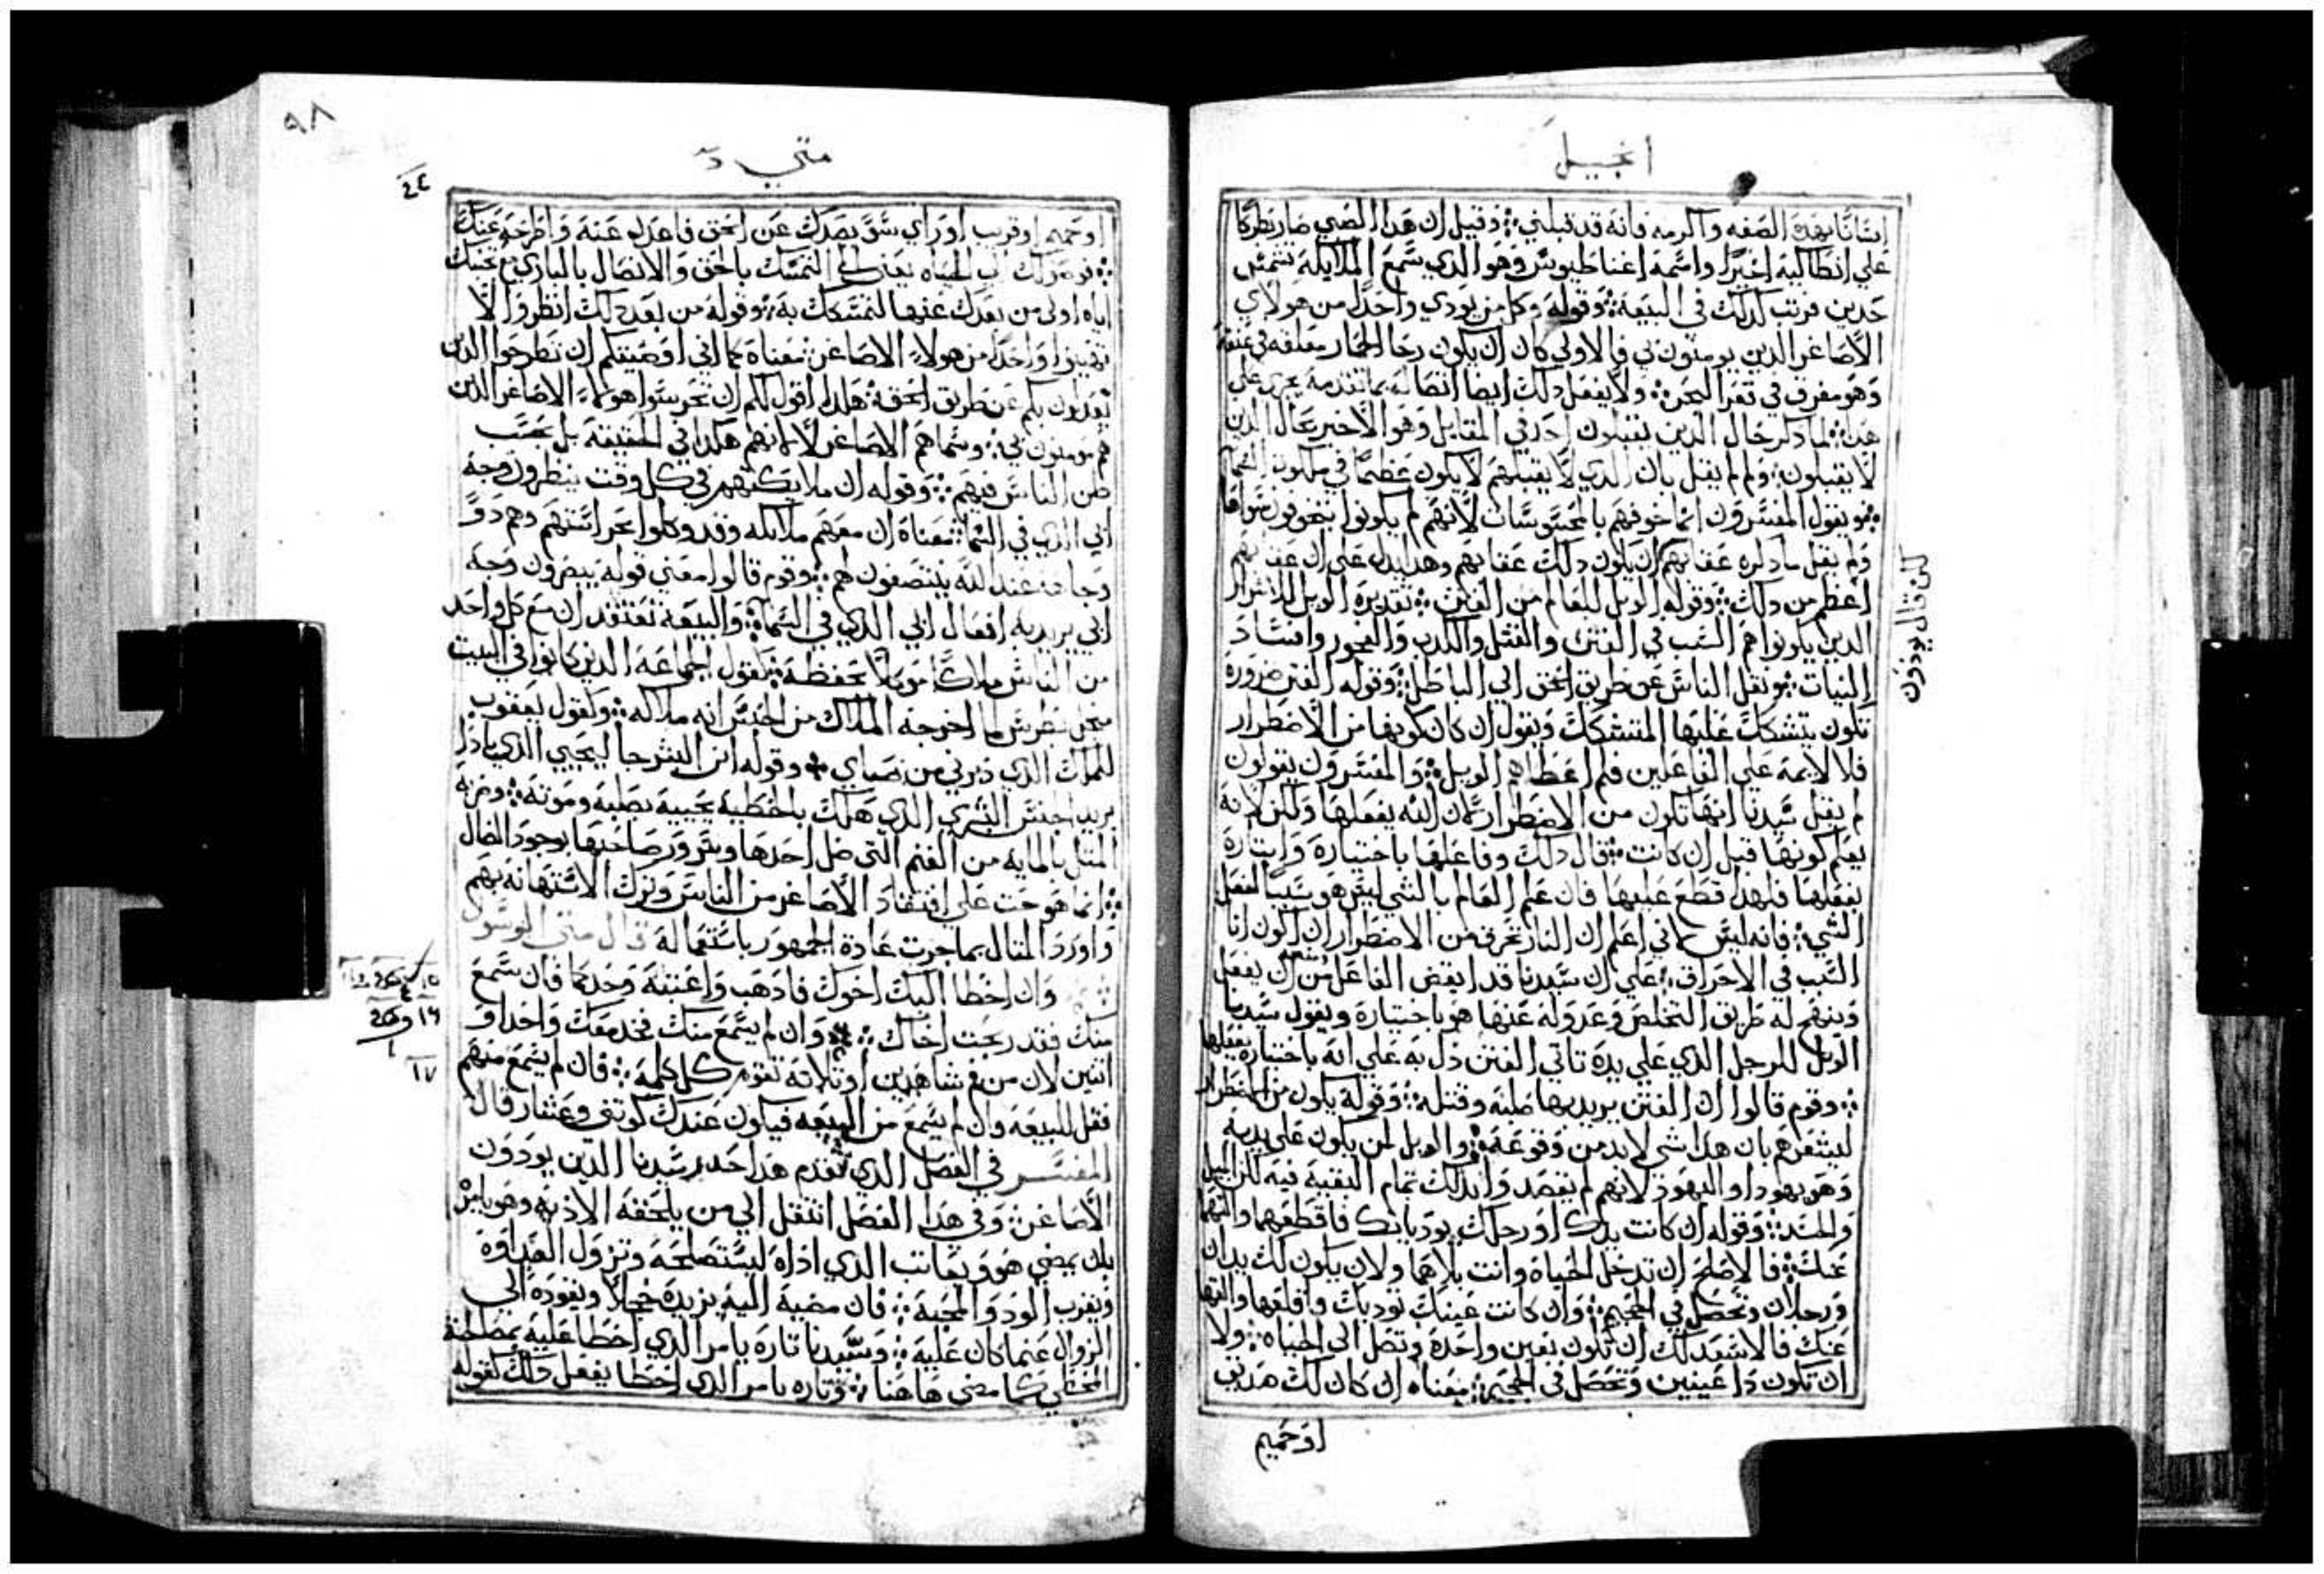 انجيل
انسانا بهده الصفه واكرمه فانه قد قبلني وقيل ان هدا الصبي صار بطركا
علي انطاكية اخيرا واسمه اغناطيوس وهو الدي سمع الملايكة تسبح
فرتب كدلك في البيعة وقوله وكل من يودي واحدا من هولاي
الاصاغر الدين يومنون بي فالاولي كان ان يكون رحا الحمار معلقه في عنقه
وهو مغرق في قعر البحر ولا يفعل دلك ايضا اتصاله بما تقدمه يجري علي
هدا لما دكر حال الدين يقبلون احد في المقابل وهو الاخبر بحال الدين
لا يقبلون ولم لم يقل بان الدي لا يقبلهم لا يكون عظيما في ملكوت السما
ويقول المفسرون انما خوفهم بالمحسوسات لانهم لم يكونوا يتخوفون سواها
ولم يقل ما دكره عقابهم ان يكون دلك عقابهم وهدا يدل علي ان عقابهم
اعظم من دلك وقوله الويل للعالم من الفتن تقديره الويل للاشرار
الدين يكونوا هم السبب في الفتن والقتل والكدب والفجور وافساد
النيات ونقل الناس عن طريق الحق الي الباطل وقوله الفتن ضرورة
تكون يتشكك عليها المتشكك ويقول ان كان كونها من الاضطرار
فلا لايمه علي الفاعلين فلم اعطاهم الويل والمفسرون يقولون
لم يقل سيدنا انها تكون من الاضطرار كان الله يفعلها ولكن لانه
يعلم كونها قبل ان كانت قال دلك وفاعلها باختياره وايتاره
يفعلها فلهدا قطع عليها فان علم العالم بالشي ليس هو سببا لفعل
الشي فانه ليس اني اعلم ان النار تحرق من الاضطرار ان اكون انا
السبب في الاحراق علي ان سيدنا قد ايقض الفاعل من ان يفعل
وينهج له طريق التخلص وعدوله عنها هو باختياره ويقول سيدنا
الويل للرجل الدي علي يده تاتي الفتن دل به علي انه باختياره يفعلها
وقوم قالوا ان الفتن يريد بها صلبه وقتله وقوله يكون من الاضطرار
ليشعرهم بان هدا شي لابد من وقوعه والويل لمن يكون علي يديه
وهو يهودا واليهود لانهم لم يقصدوا بدلك تمام البقية فيه لكن الميل
والحسد وقوله ان كانت يدك او رجلك يوديانك فاقطعهما والقهما
عنك فالاصلح ان تدخل الحياة وانت بلاهما ولا ان يكون لك يدان
ورجلان وتحصل في الجحيم وان كانت عينك توديك فاقلعها والقها
عنك فالاسعد لك ان تكون بعين واحدة وتصل الي الحياه ولا
ان تكون دا عينين وتحصل في الجحيم معناه ان كان لك صديق
او حميم
لكن قال يودون
٩٨
متي
24
او حميم او قريب او راي سو يصدك عن الحق فاعدل عنه واطرحه عنك
فوصولك الي الحياه يعني الي التمسك بالحق والاتصال بالباري مع تجنبك
اياه اولي من بعدك عنها لتمسكك به وقوله من بعد دلك انظروا الا
تهينوا واحدا من هولاء الاصاغر معناه كما اني اوصيتكم ان تطرحوا الدين
يعدلون بكم عن طريق الحق هكدا اقول لكم ان تحرسوا هولاء الاصاغر الدين
هم مومنون بي وسماهم الاصاغر لا لانهم هكدا في الحقيقة بل بحسب
ظن الناس فيهم وقوله ان ملايكتهم في كل وقت ينظرون وجه
ابي الدي في السما معناه ان معهم ملايكه وقد وكلوا بحراستهم وهم دو
وجاهه عند الله ينتصفون لهم وقوم قالوا معني قوله يبصرون وجه
ابي يريد به افعال ابي الدي في السماء والبيعة تعتقد ان مع كل واحد
من الناس ملاكا موكلا بحفظه كقول الجماعة الدين كانوا في البيت
بطرس لما اخرجه الملاك من الحبس انه ملاكه وكقول يعقوب
الملاك الدي دبرني من صباي وقوله ابن البشر جا ليحيي الدي باد
يريد الجنس البشري الدي هلك بالخطية يحييه بصلبه وموته وضربه
المتل بالمايه من الغنم التي ضل احدها وسرور صاحبها بوجود الضال
انما هو حت علي افتقاد الاصاغر من الناس وترك الاستهانه بهم
واورد المتال بما جرت عادة الجمهور باستعماله قال متي الرسول
وان اخطا اليك اخوك فادهب واعتبه وحدكما فان سمع
منك فقد ربحت اخاك وان لم يسمع منك فخد معك واحدا او
اتنين لان من فم شاهدين او تلاته تقوم كل كلمه فان لم يسمع منهم
فقل للبيعه وان لم يسمع من البيعه فيكون عندك كوتني وعشار قال
المفسر في الفصل الدي تقدم هدا حدر سيدنا الدين يودون
الاصاغر وفي هدا الفصل انتقل الي من يلحقه الاديه وهو يامر
بان يمضي هو ويعاتب الدي اداه ليستصلحه وتزول العداوة
ويقرب الود والمحبة فان مضيه اليه يزيده خجلا ويقوده الي
الزوال عنما كان عليه وسيدنا تاره يامر الدي اخطا عليه بمصالحة
المخطي كما مضي هاهنا وتاره يامر الدي اخطا يفعل دلك كقوله
١٥
١٦
١٧